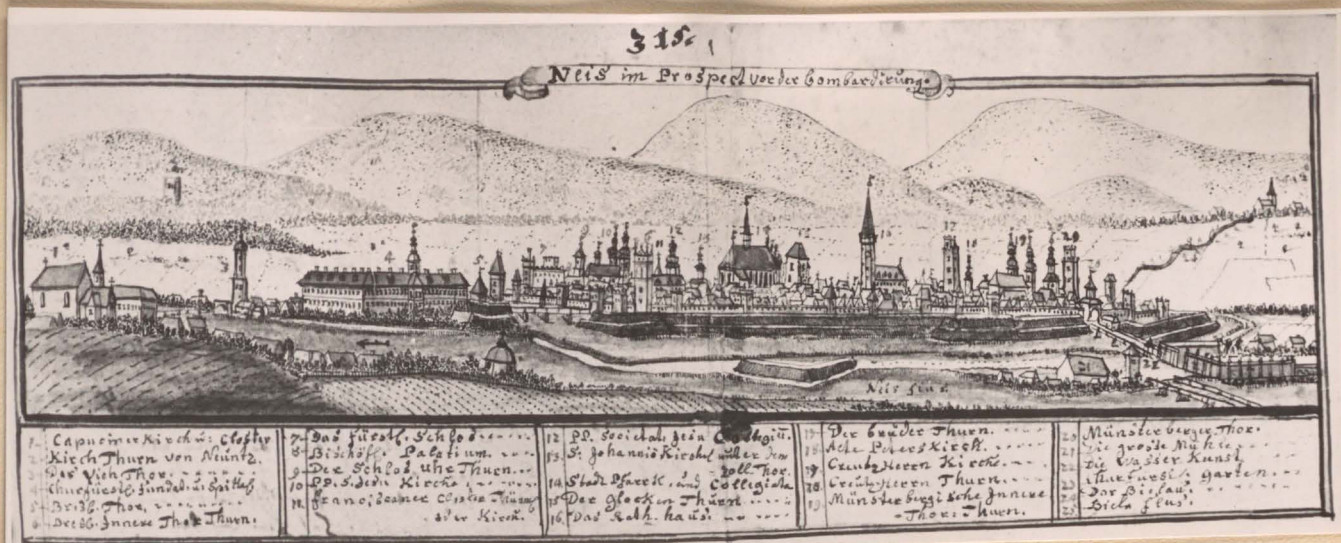 315.
Neis im Prospect vor der bombardirung.
Neis flus.
1. Capuciner Kirch u: Closter
2. Kirch Thurn von Nüntz.
3. Das Vieh Thor.
4. Churfürstl:
5. Bresl: Thor,
6. Bresl: Innere Thor Thurn.
7. Das fürstl. Schlos
8. Bischöfl. Palatium.
9. Der Schlos uhr Thurn.
10. PP. S. Jesu Kirche
11. Franciscaner Closter
oder Kirch.
12. PP. Societat: Jesu Collegiū.
13. S: Johannis Kirchel über dem
Zoll Thor.
14. Stadt Pfarrk: und Collegiata
15. Der Glocken Thurn
16. Das Rath haus.
Der brüder Thurn.
18. Alte Peters Kirch.
Creutz Herrn Kirche
Creutz Herrn Thurn
19. Münsterbergische Innere
Thor: Thurn.
20. Münsterberger Thor.
21. Die grosse Mühle
22. Die Wasser Kunst
garten
Der Bischau:
25. Biela flus.